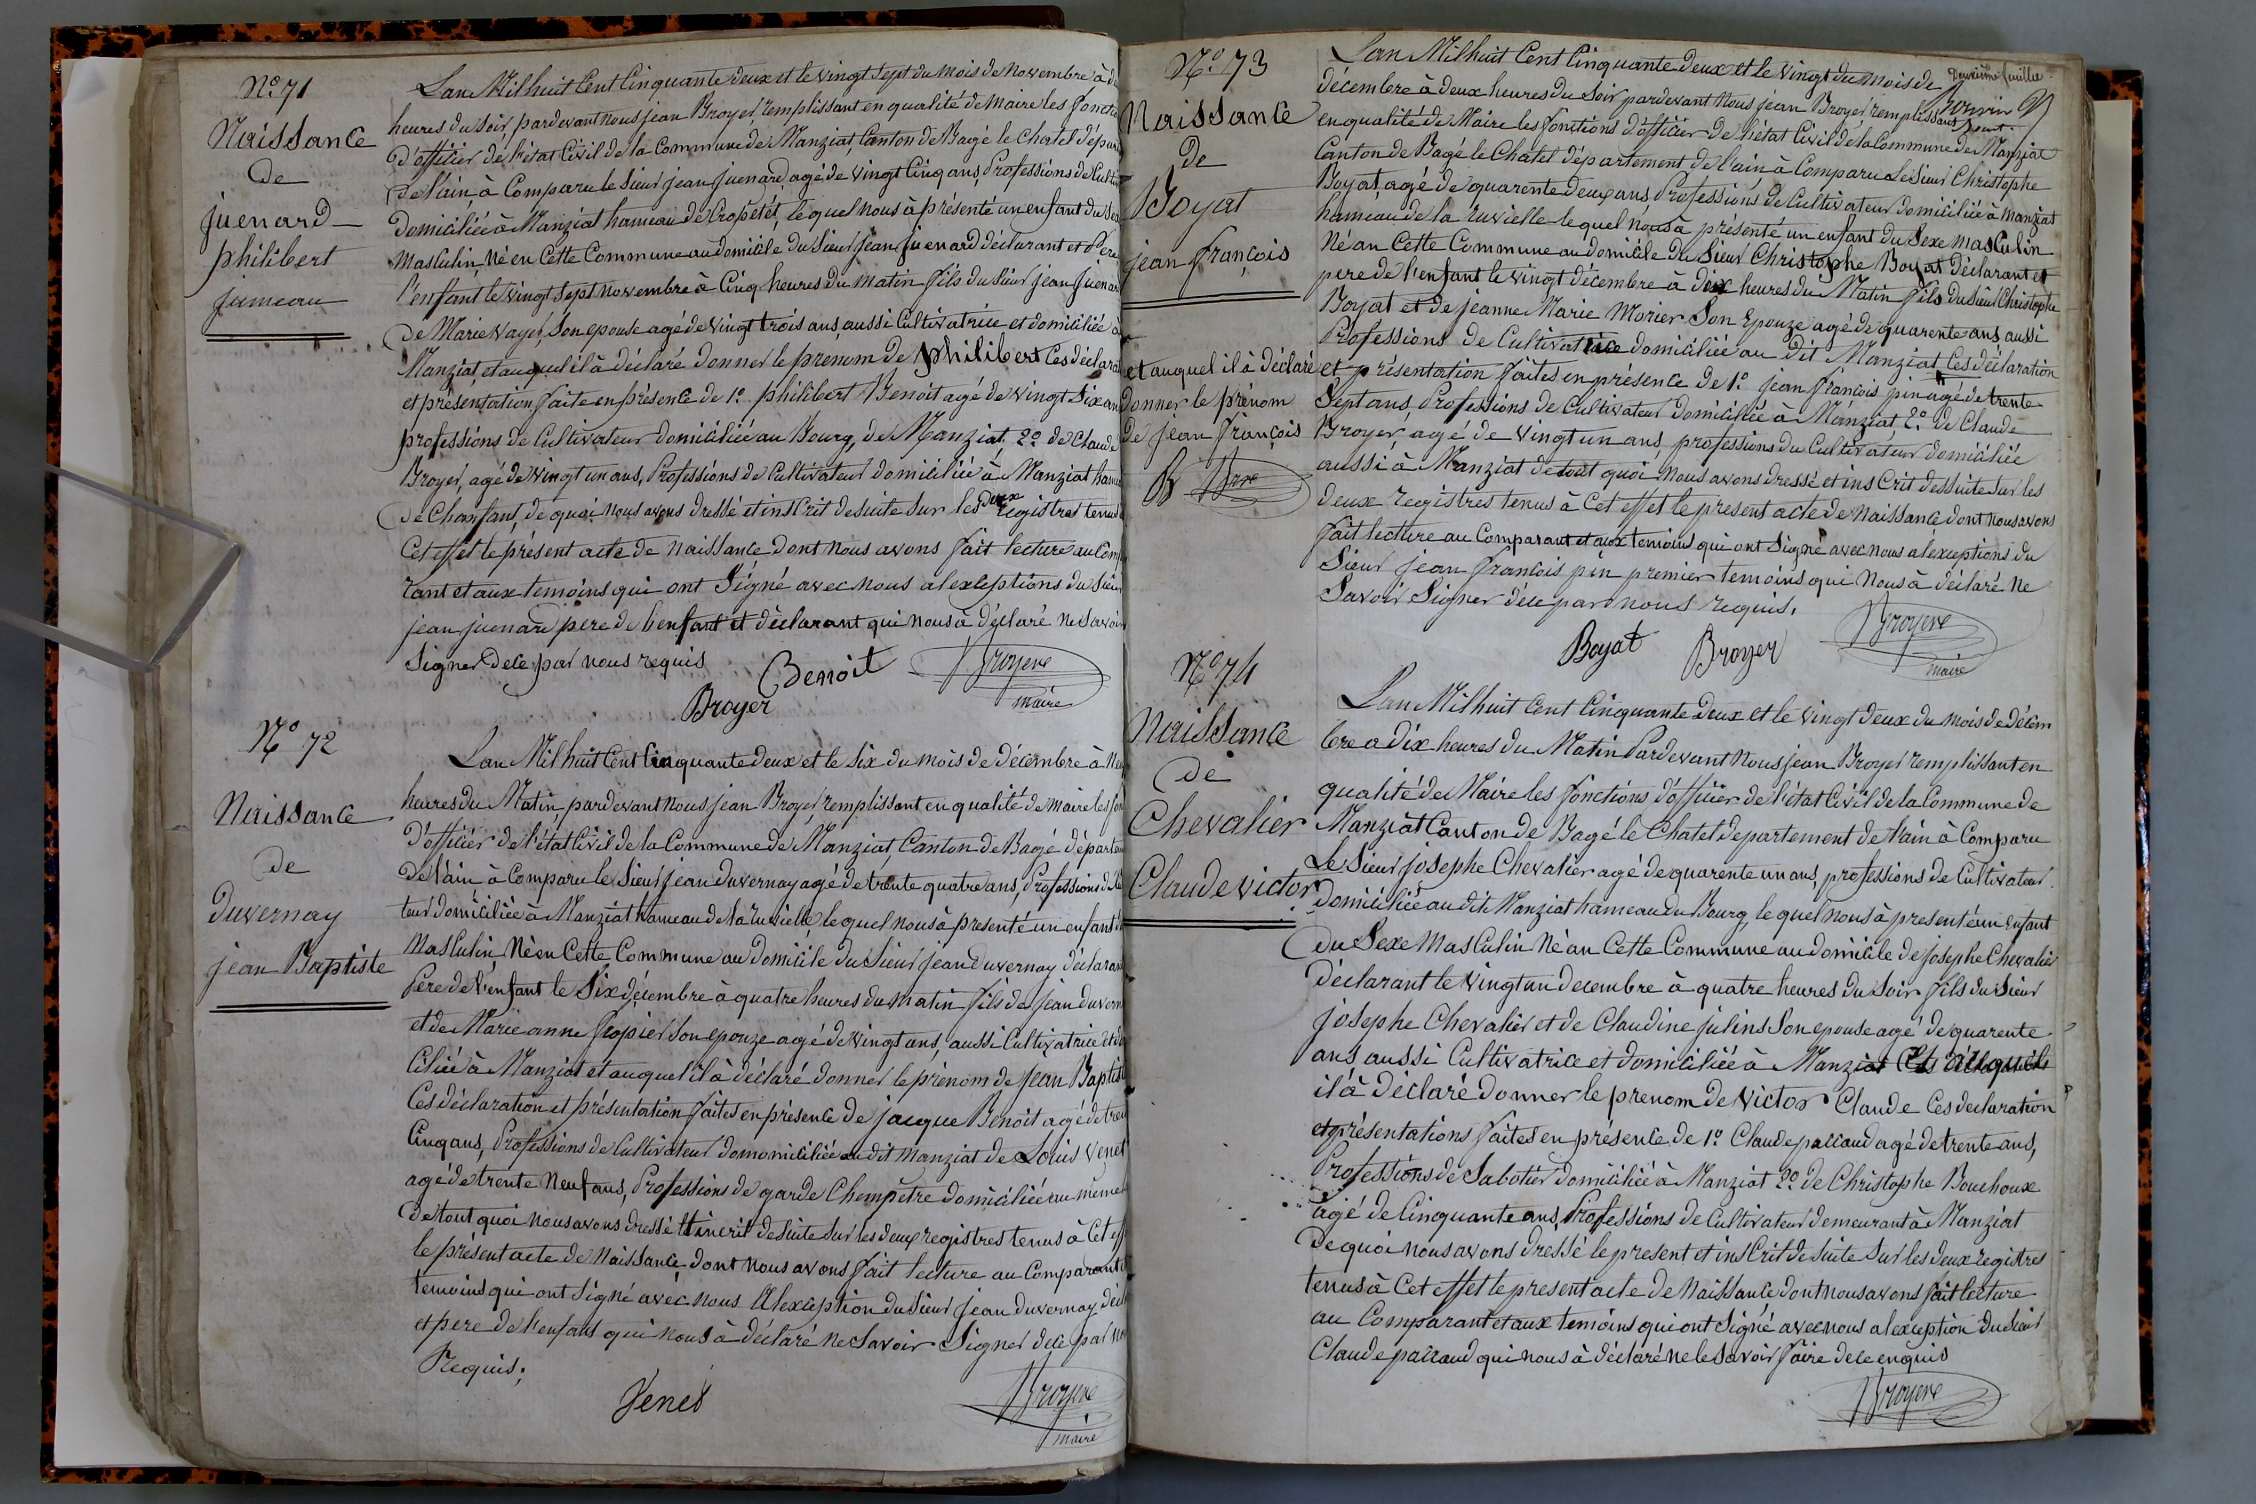 N° 71
Naissance
de
juenard
philibert
jumeau
Lan Mil huit Cent Cinquante deux et le vingt sept du mois de Novembre à
heures du soir, pardevant nous jean Broyer, remplissant en qualité de Maire les
d'officier de l'état Civil de la Commune de Manziat, Canton de Bagé le Chatel
de l'ain, à Comparu le Sieur jean juenard, agé de vingt Cinq ans, Professions de
domiciliée à Manziat hameau de Cropetet, lequel nous à présenté un enfant du
Masculin, Né en Cette Commune au domicile du Sieur jean juenard déclarant et Pere
l'enfant le vingt sept novembre à Cinq heures du matin fils du Sieur jean
de Marie vayer, Son epouse agé de vingt trois ans, aussi Cultivatrice et domiciliée à
Manziat, et auquel il à déclaré donner le prenom de philibert Ces
et présentation faite en présence de 1° philibert Benoit agé de vingt Six ans
professions de Cultivateur domiciliée au Bourg, de Manziat, 2° de Claude
Broyer, agé de vingt un ans, Professions de Cultivateur domiciliée à Manziat
de Chanfant, de quoi nous avons dressé et inscrit desuite sur les deux registres tenus
Cet effet le présent acte de Naissance dont nous avons fait lecture au
rant et aux temoins qui ont Signé avec nous alexceptions du Sieur
jean juenard pere de l'enfant et déclarant qui nous à déclaré ne Savoir
Signer dece par nous requis
Benoit Broyer maire
Broyer
N° 72
Naissance
de
duvernay
jean Baptiste
Lan Mil huit Cent Cinquante deux et le Six du mois de décembre à
heures du Matin, pardevant nous jean Broyer, remplissant en qualité de maire les
d'officier de l'état Civil de la Commune de Manziat, Canton de Bagé
de l'ain à Comparu le Sieur jean duvernay agé de trente quatre ans, Professions de
teur domiciliée à Manziat hameau de la ruvielle, lequel nous à presenté un enfant
Masculin, Né en Cette Commune au domicile du Sieur jean duvernay
Pere de l'enfant le Six décembre à quatre heures du matin fils de jean
et de Marie anne fropier Son epouze agé de vingt ans, aussi Cultivatrice et
ciliée à Manziat et auquel il à déclaré donner le prénom de jean
Ces déclaration et présentation faites en présence de jacque Benoit agé de
Cinq ans, Professions de Cultivateur domomiciliée au dit Manziat de Louis Venet
agé de trente Neuf ans, Professions de garde Chempêtre domiciliée au même
de tout quoi nous avons dressé et inscrit desuite sur les deux registres tenus à Cet
le présent acte de Naissance, dont nous avons fait lecture au Comparant
temoins qui ont signé avec nous Alexception du Sieur jean duvernay
et pere de l'enfant qui nous à déclaré ne Savoir Signer dece par
Requis;
Venet Broyer
maire
N° 73
Naissance
de
Boyat
jean françois
et auquel il à déclaré
donner le prénom
de jean françois
Deuxième feuille
Lan Mil huit Cent Cinquante deux et le vingt du mois de
décembre à deux heures du Soir pardevant nous jean Broyer, remplissant
en qualité de Maire les fonctions d'officier de l'état Civil de la Commune de Manziat
Canton de Bagé le Chatel département de l'ain à Comparu le Sieur Christophe
Boyat, agé de quarente deux ans, Professions de Cultivateur domiciliée à Manziat
hameau de la ruvielle lequel nous à présenté un enfant du Sexe masculin
Né an Cette Commune au domicile du Sieur Christophe Boyat Déclarant et
pere de l'enfant le vingt décembre à dix heures du Matin fils du Sieur Christophe
Boyat et de jeanne Marie Morier Son Epouze agé de quarente ans, aussi
Professions de Cultivatrice domiciliée au dit Manziat Ces déclaration
et présentation faites en présence de 1° jean françois pin agé de trente
Sept ans, Professions de Cultivateur domiciliée à Manziat, 2° de Claude
Broyer agé de vingt un ans, professions du Cultivateur domiciliée
aussi à Manziat de tout quoi nous avons dressé et inscrit dessuite sur les
deux registres tenus à Cet effet le present acte de Naissance dont nous avons
fait lecture au Comparant et aux temoins qui ont signé avec nous aléxceptions du
Sieur jean françois pin premier temoins qui Nous à déclaré ne
Savoir Signer dece par nous requis,
Boyat Broyer Broyer
maire
N° 74
Naissance
de
Chevalier
Claude victor
Lan Mil huit Cent Cinquante deux et le vingt deux du mois de décem
bre a dix heures du Matin Pardevant nous jean Broyer remplissant en
qualité de Maire les fonctions d'officier de l'état Civil de la Commune de
Manziat Canton de Bagé le Chatel departement de l'ain à Comparu
Le Sieur josephe Chevalier agé de quarente un ans, professions de Cultivateur
Domiciliée au dit Manziat hameau du Bourg, le quel nous à presenté un Enfant
du Sexe Masculin Né an Cette Commune au domicile de josephe Chevalier
déclarant le vingt un decembre à quatre heures du Soir fils du Sieur
josephe Chevalier et de Claudine julins Son epouse agé de quarente
ans aussi Cultivatrice et domiciliée à Manziat
il à déclaré donner le prenom de victor Claude Ces declaration
et présentations faites en présence de 1° Claude paccaud agé de trente ans,
Professions de Sabotier domiciliée à Manziat 2° de Christophe Bouchoux
agé de Cinquante ans, Professions de Cultivateur demeurant à Manziat
De quoi nous avons dressé le present et inscrit de suite sur les deux registres
tenus à Cet effet le present acte de Naissance dont nous avons fait lecture
au Comparant et aux temoins qui ont signé avec nous alexception du Sieur
Claude paccaud qui nous à déclaré ne le Savoir faire dece enquis
Broyer